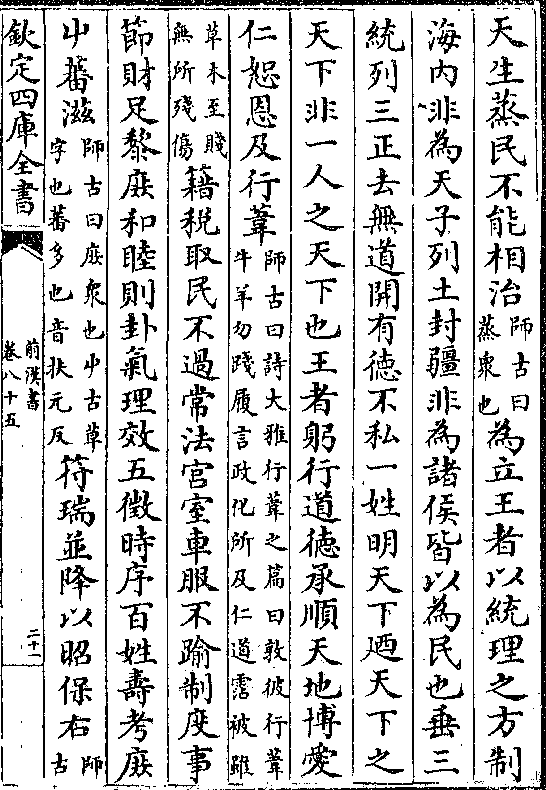 天生蒸民不能相治師古曰蒸衆也為立王者以統理之方制
海内非為天子列土封疆非為諸侯皆以為民也垂三
統列三正去無道開有徳不私一姓明天下廼天下之
天下非一人之天下也王者躬行道徳承順天地博愛
仁恕恩及行葦師古曰詩大雅行葦之篇曰敦彼行葦牛羊勿踐履言政化所及仁道霑被雖
草木至賤無所殘傷籍税取民不過常法宫室車服不踰制度事
節財足黎庶和睦則卦氣理效五徵時序百姓壽考庶
屮蕃滋師古曰庶衆也屮古草字也蕃多也音扶元反符瑞並降以昭保右師古
欽定四庫全書
前漢書
卷八十五
二十一